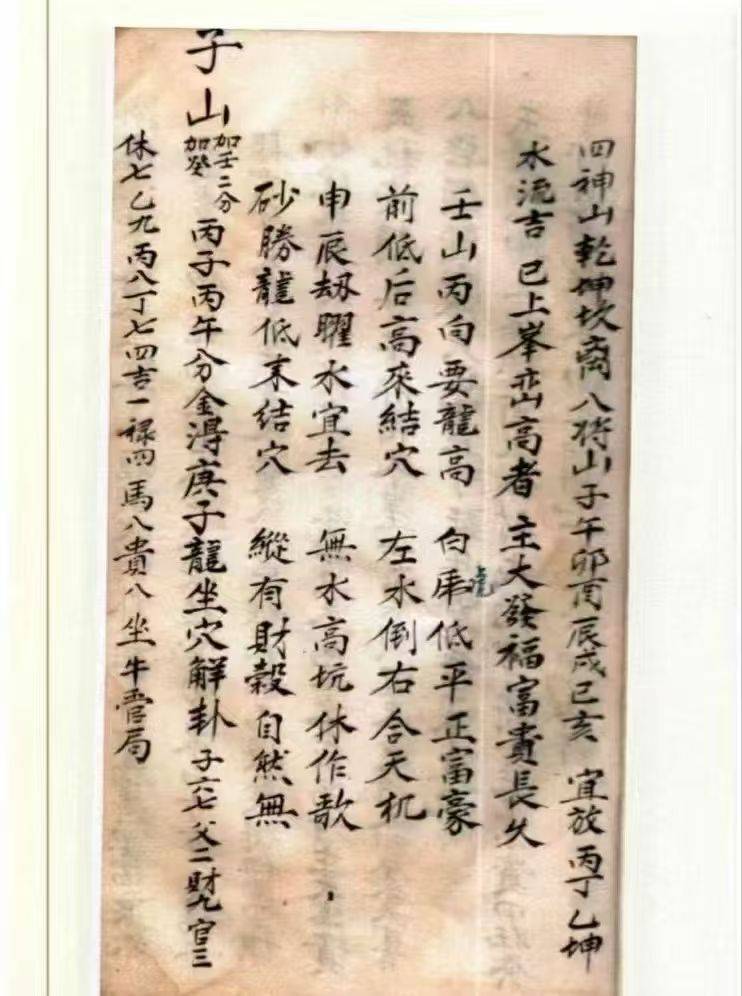 四神山乾坤坎离八将山子午卯酉辰戌巳亥 宜放丙丁乙坤
水流吉 已上峯峦高者主大發福富貴長久
壬山丙向要龍高 白虎低平正富豪
前低后高來結穴 左水倒右合天机
申辰劫曜水宜去 無水高坑休作歌
砂勝龍低末結穴 縱有財穀自然無
子山 加壬加癸二分 丙子丙午分金得庚子龍坐穴解卦 子六七父二財九官三
休七乙九丙八丁七四吉一祿四馬八貴八坐牛局